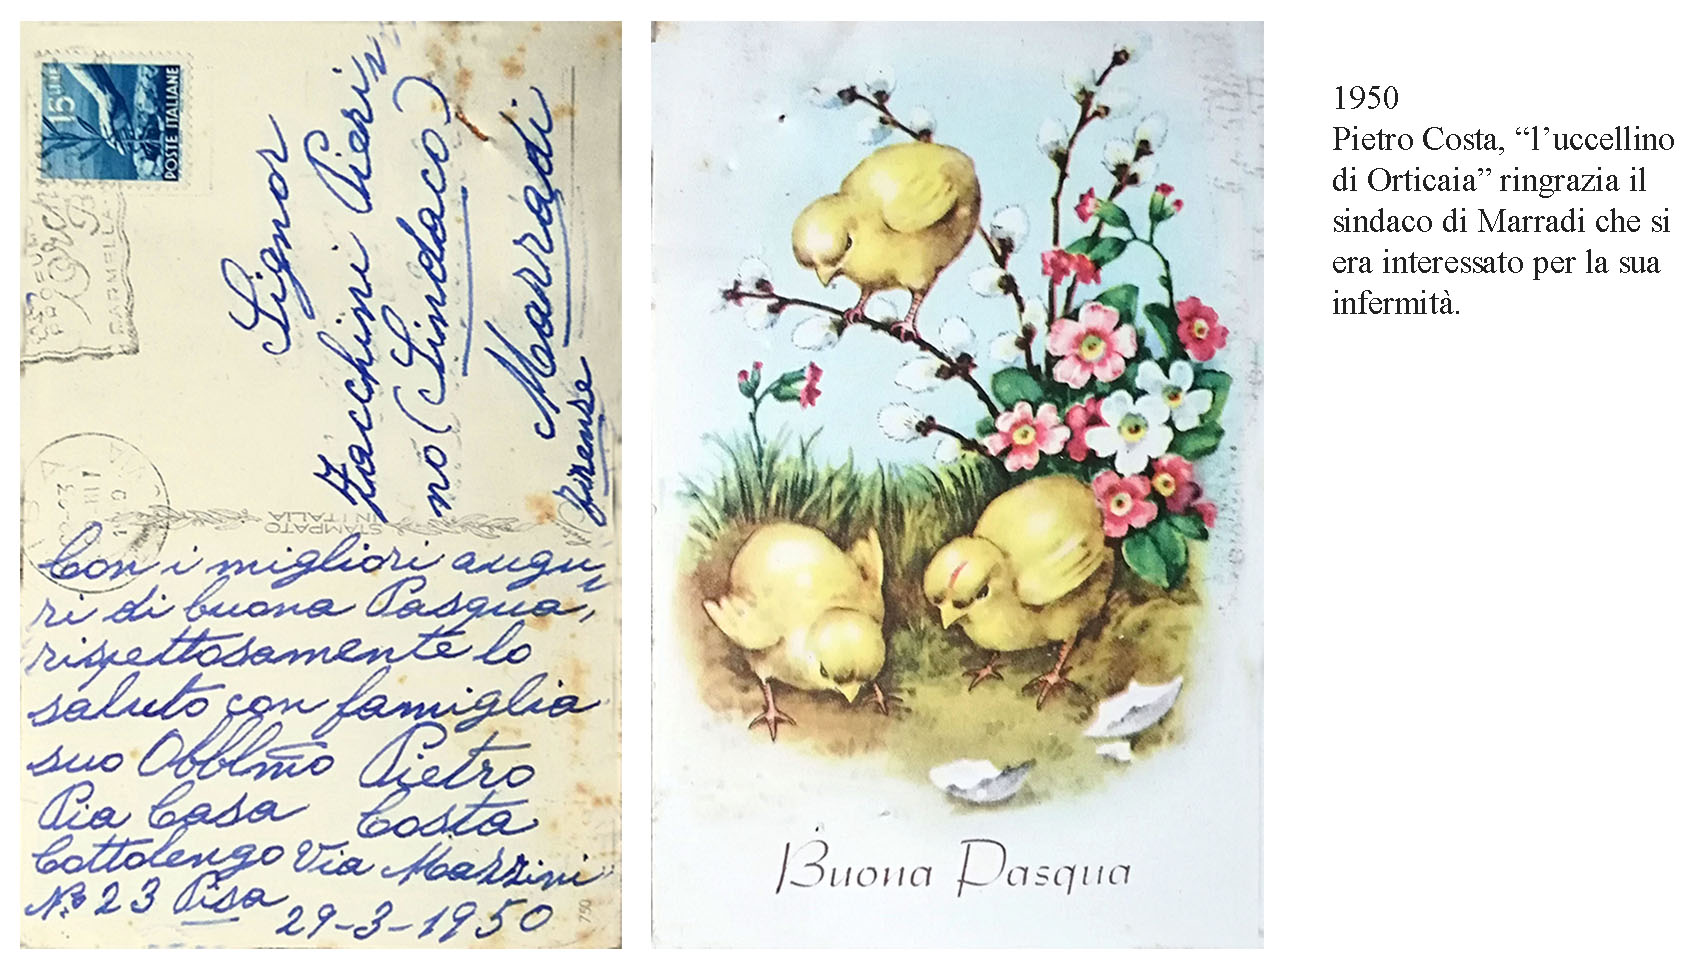 15 LIRE
POSTE ITALIANE
Signor
Zacchini Pieri
no (Sindaco)
Marradi
Firenze
STAMPATO
IN ITALIA
Con i migliori augu
ri di buona Pasqua,
rispettosamente lo
saluto con famiglia
suo Obblmo Pietro
Pia Casa Costa
Cottolengo Via Mazzini
N.o 23 Pisa
29-3-1950
750
Buona Pasqua
1950
Pietro Costa, “l’uccellino
di Orticaia” ringrazia il
sindaco di Marradi che si
era interessato per la sua
infermità.